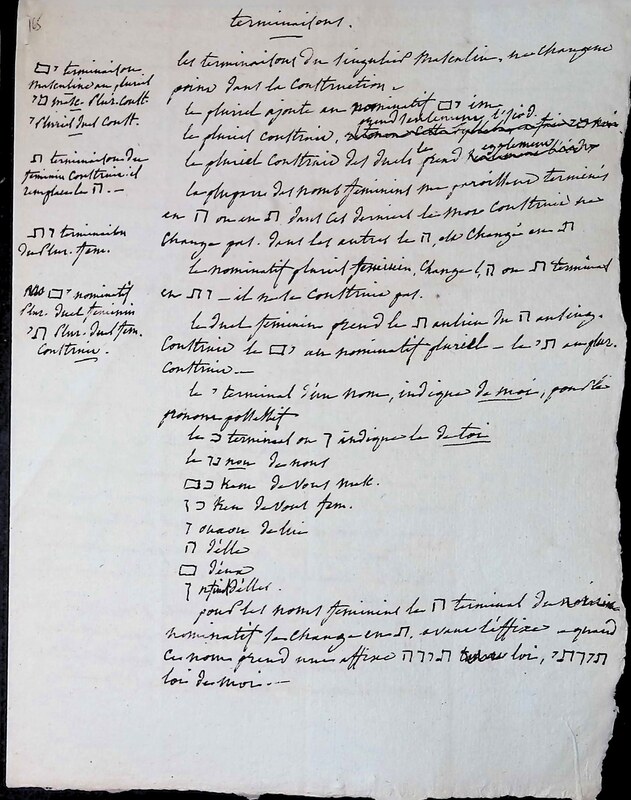 165
terminaisons.
ים terminaison
masculine au pluriel
י mask. plur. constr.
י pluriel duel constr.
ת terminaison du
feminin construit il
remplace le ה. —
ות terminaison
du plur. fem.
ים nominatif
plur. duel feminin
תי plur. duel fem.
construit.
les terminaisons du singulier masculin, ne changent
point dans la construction. —
le pluriel ajoute au nominatif ים im
le pluriel construit, prend seulement l'jod.
le pluriel construit des duels le prend egalement
la plupart des noms feminins me paroissent terminés
en ה ou en ת dans ces derniers le mot construit ne
change pas. dans les autres le ה se change en ת
le nominatif pluriel feminin, change l' ה ou ת terminal
en ות — il ne se construit pas.
le duel feminin prend le ת au lieu du ה au sing.
construit le ים au nominatif pluriel — le תי au plur.
construit. —
le י terminal d'un nom, indique de moi, pour le
pronom possessif
le ך terminal indique le de toi
le נו nou de nous
כם kem de vous mask.
כן ken de vous fem.
ו de lui
ה d'elle
ם d'eux
ן d'elles.
pour les noms feminins le ה terminal du
nominatif se change en ת. avant l'affixe — quand
ce nom prend une affixe תורה loi, תורתי
loi de moi. —